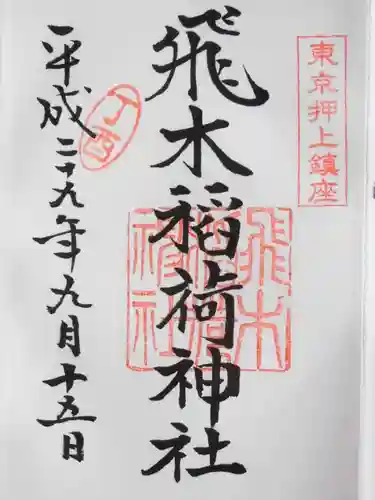 東京押上鎮座
飛木稲荷神社
飛木稲荷神社
丁酉
平成二十九年九月十五日